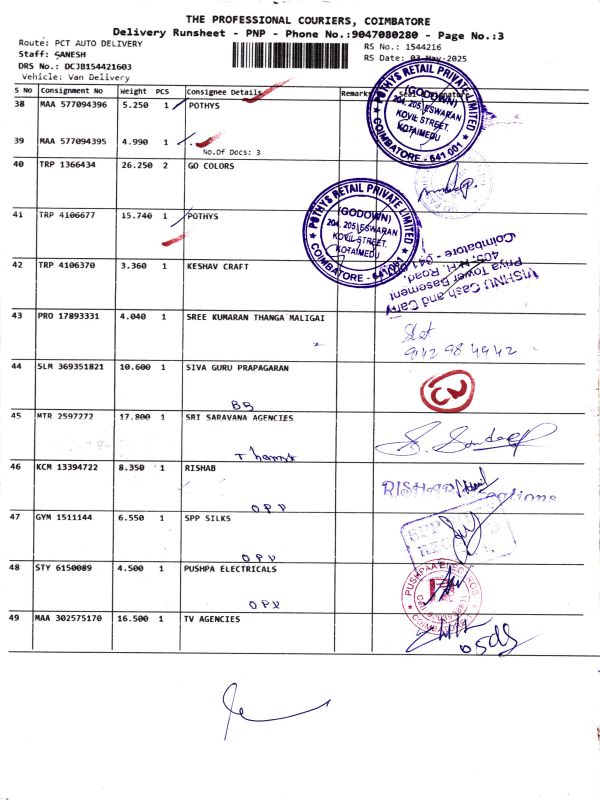 THE PROFESSIONAL COURIERS, COIMBATORE
Delivery Runsheet - PNP - Phone No.:9047080280 - Page No.:3
Route: PCT AUTO DELIVERY
RS No.: 1544216
Staff: GANESH
RS Date: 03-May-2025
DRS No.: DCJB154421603
Vehicle: Van Delivery
S No Consignment No Weight PCS Consignee Details Remarks
38 MAA 577094396 5.250 1 POTHYS
POTHYS RETAIL PRIVATE LIMITED
(GODOWN)
204, 205, ESWARAN
KOVIL STREET,
KOTAIMEDU
COIMBATORE - 641 001
39 MAA 577094395 4.990 1
No.Of Docs: 3
40 TRP 1366434 26.250 2 GO COLORS
41 TRP 4106677 15.740 1 POTHYS
POTHYS RETAIL PRIVATE LIMITED
(GODOWN)
204, 205, ESWARAN
KOVIL STREET,
KOTAIMEDU
COIMBATORE - 641 001
42 TRP 4106370 3.360 1 KESHAV CRAFT
VISHNU Cash and Carry
Priya Tower Basement
405, N.H. Road,
Coimbatore - 641
43 PRO 17893331 4.040 1 SREE KUMARAN THANGA MALIGAI
9142 98 4942
44 SLM 369351821 10.600 1 SIVA GURU PRAPAGARAN
BB
CN
45 MTR 2597272 17.800 1 SRI SARAVANA AGENCIES
S. Sandeep
46 KCM 13394722 8.350 1 RISHAB
OPP
RISHAB
47 GYM 1511144 6.550 1 SPP SILKS
OPP
48 STY 6150089 4.500 1 PUSHPA ELECTRICALS
OPP
PUSHPAA ELECTROS
COIMBATORE
49 MAA 302575170 16.500 1 TV AGENCIES